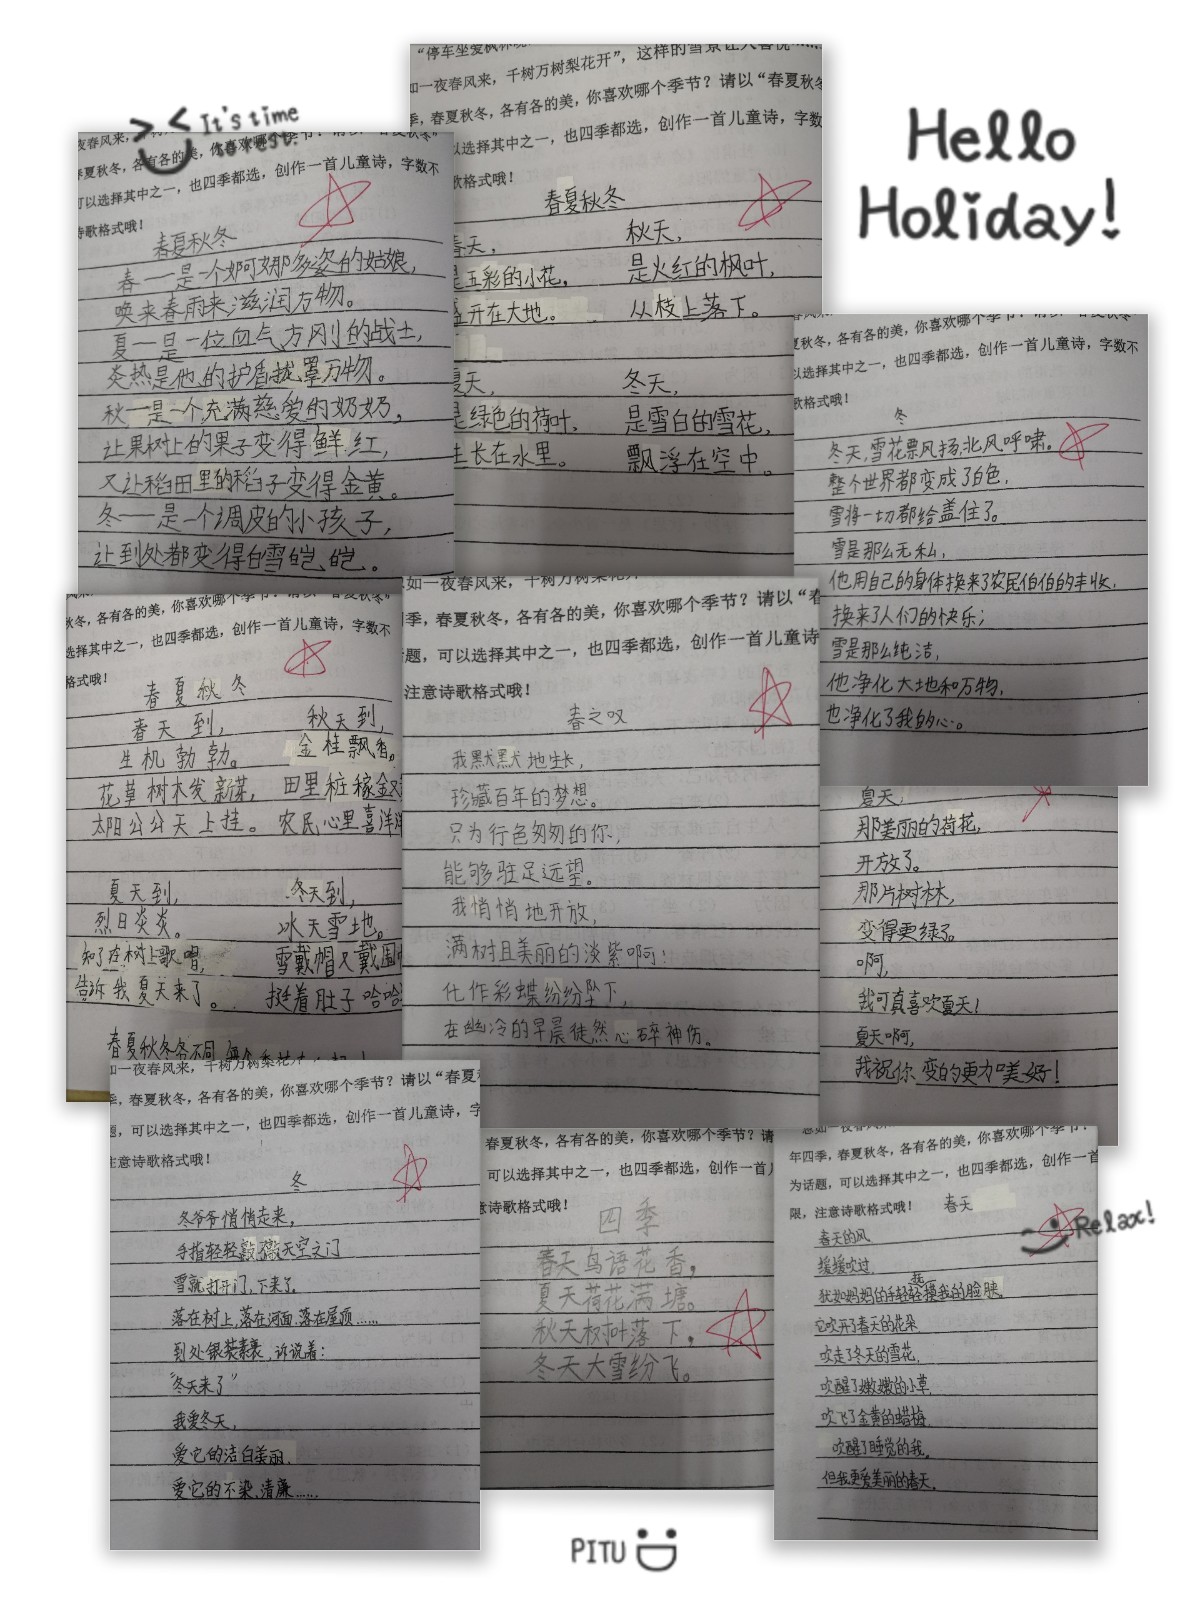 It's time
to rest.
Hello
Holiday!
春夏秋冬，各有各的美，你喜欢哪个季节？请以“春夏秋冬”
可以选择其中之一，也四季都选，创作一首儿童诗，字数不
诗歌格式哦！
春夏秋冬
春——是一个婀娜多姿的姑娘，
唤来春雨来滋润万物。
夏——是一位血气方刚的战士，
炎热是他的护盾拢罩万物。
秋——是一个充满慈爱的奶奶，
让果树上的果子变得鲜红，
又让稻田里的稻子变得金黄。
冬——是一个调皮的小孩子，
让到处都变得白雪皑皑。
“停车坐爱枫林晚
如一夜春风来，千树万树梨花开”，这样的雪景让人喜悦……
季，春夏秋冬，各有各的美，你喜欢哪个季节？请以“春夏秋冬
以选择其中之一，也四季都选，创作一首儿童诗，字数
歌格式哦！
春夏秋冬
春天，
是五彩的小花，
盛开在大地。
夏天，
是绿色的荷叶，
生长在水里。
秋天，
是火红的枫叶，
从枝上落下。
冬天，
是雪白的雪花，
飘浮在空中。
夏秋冬，各有各的美，你喜欢哪个季节？请以“春夏秋冬”
以选择其中之一，也四季都选，创作一首儿童诗，字数不
歌格式哦！
冬
冬天，雪花票风扬，北风呼啸。
整个世界都变成了白色，
雪将一切都给盖住了。
雪是那么无私，
他用自己的身体换来了农民伯伯的丰收，
换来了人们的快乐；
雪是那么纯洁，
他净化大地和万物，
也净化了我的心。
秋冬，各有各的美，你喜欢哪个季节？请以“春夏秋冬”
选择其中之一，也四季都选，创作一首儿童诗，字数不
格式哦！
春夏秋冬
春天到，
生机勃勃。
花草树木发新芽，
太阳公公天上挂。
夏天到，
烈日炎炎。
知了在树上歌唱，
告诉我夏天来了。
秋天到，
金桂飘香。
田里桩稼金
农民心里喜洋洋
冬天到，
冰天雪地。
雪戴帽又戴围
挺着肚子哈哈
春夏秋冬各不同
如一夜春风来，千树万树梨花开
季，春夏秋冬，各有各的美，你喜欢哪个季节？请以“春
话题，可以选择其中之一，也四季都选，创作一首儿童诗
注意诗歌格式哦！
春之叹
我默默地生长，
珍藏百年的梦想。
只为行色匆匆的你，
能够驻足远望。
我悄悄地开放，
满树且美丽的淡紫啊！
化作彩蝶纷纷坠下，
在幽冷的早晨徒然心碎神伤。
夏天，
那美丽的荷花，
开放了。
那片树林，
变得更绿了。
啊，
我可真喜欢夏天！
夏天啊，
我祝你变的更加美好！
如一夜春风来，千树万树梨花开
季，春夏秋冬，各有各的美，你喜欢哪个季节？请以“春夏
题，可以选择其中之一，也四季都选，创作一首儿童诗，字
注意诗歌格式哦！
冬
冬爷爷悄悄走来，
手指轻轻敲敲天空之门
雪就打开门，下来了。
落在树上，落在河面，落在屋顶……
到处银装素裹，诉说着：
“冬天来了”
我爱冬天，
爱它的洁白美丽
爱它的不染、清廉……
春夏秋冬，各有各的美，你喜欢哪个季节？请
可以选择其中之一，也四季都选，创作一首儿
诗歌格式哦！
四季
春天鸟语花香，
夏天荷花满塘。
秋天树叶落下，
冬天大雪纷飞。
年四季，春夏秋冬，各有各的美，你喜欢哪个季节？
为话题，可以选择其中之一，也四季都选，创作一首
限，注意诗歌格式哦！
春天
春天的风
缓缓吹过，
犹如妈妈的手轻轻抚摸我的脸映。
它吹开了春天的花朵
吹走了冬天的雪花，
吹醒了嫩嫩的小草，
吹飞了金黄的蜡梅，
吹醒了睡觉的我。
但我更爱美丽的春天。
Relax!
PITU